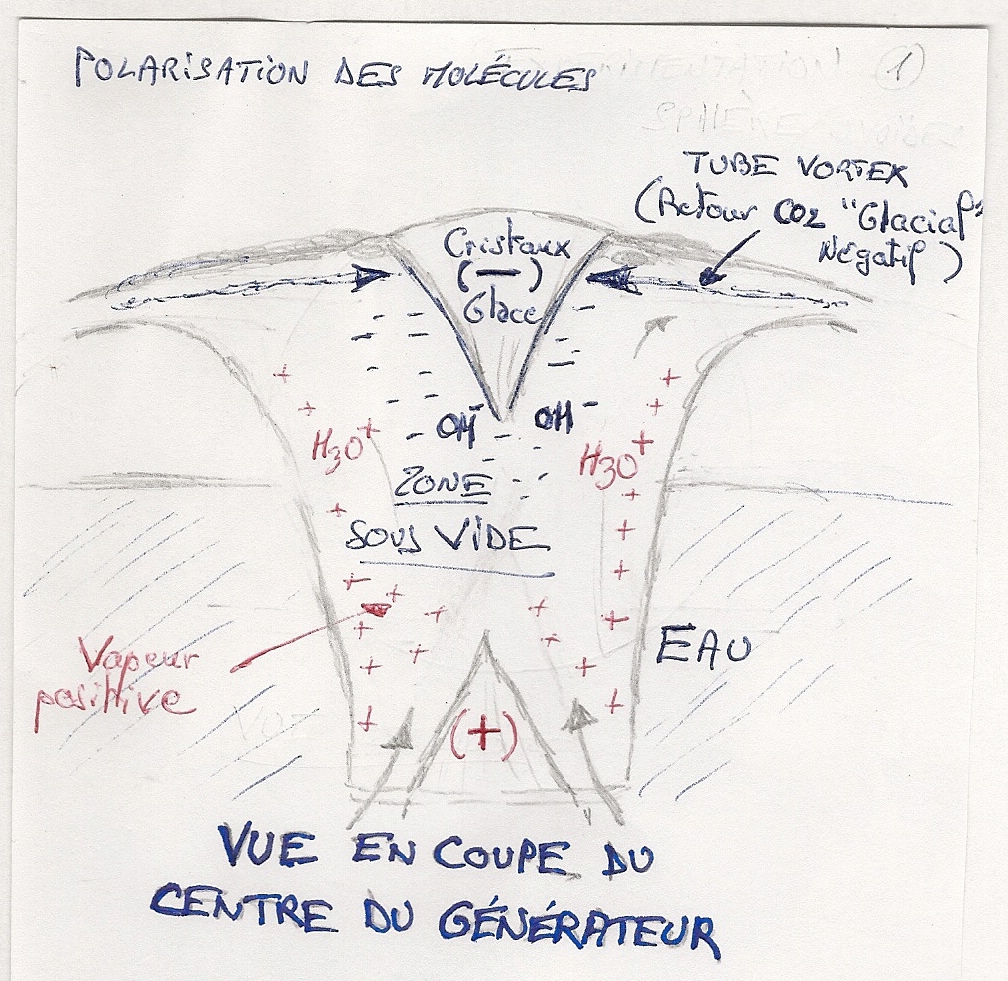 POLARISATION DES MOLÉCULES
1
TUBE VORTEX
(Retour CO2 "Glacial"
Négatif)
Cristaux
(−)
Glace
OH⁻ OH⁻
H3O⁺ H3O⁺
ZONE
SOUS VIDE
EAU
Vapeur
positive
(+)
VUE EN COUPE DU
CENTRE DU GÉNÉRATEUR